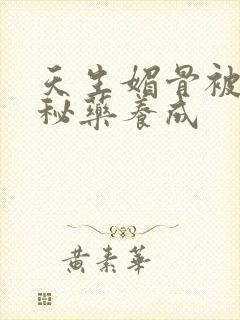 天生媚骨被
秘藥養成
黃素華